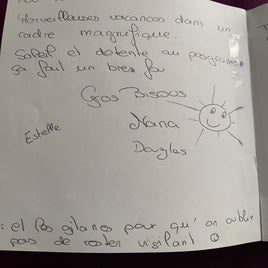 Merveilleuses vacances dans un
cadre magnifique.
Soleil et détente au programme
ça fait un bien fou
Gros Bisous
Nana
Estelle
Douglas
: et les gitanes pour qu'on oublie
pas de rester vigilant